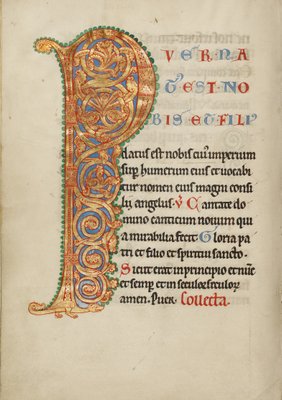 P UERNA
TUS EST NO
BIS ET FILI
datus est nobis cui' imperium
sup humerum eius et uocabi
tur nomen eius magni consi
lii angelus. V Cantate do
mino canticum nouum qui
a mirabilia fecit. Gloria pa
tri et filio et spiritui sancto.
Sicut erat in principio et nunc
et semp et in seculorum seculorum
amen. Puer. Collecta.